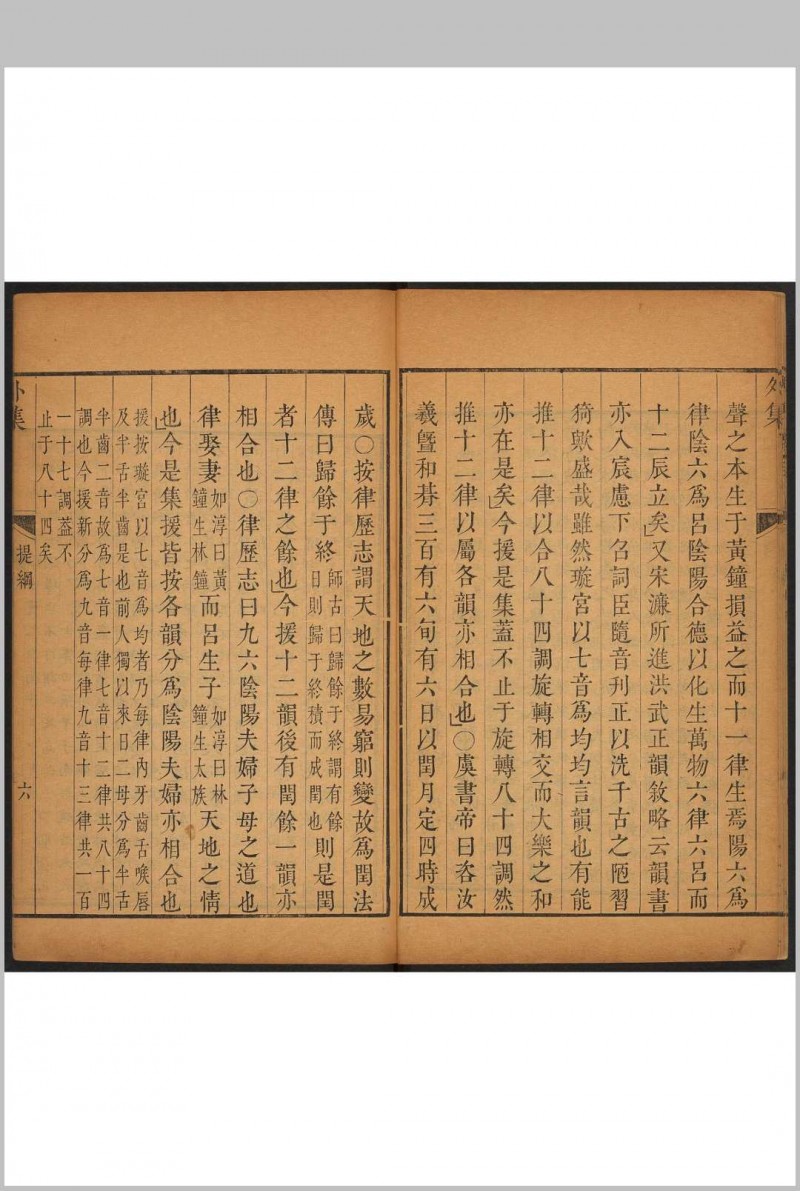 外集
聲之本生于黃鐘損益之而十一律生焉陽六爲
律陰六爲呂陰陽合德以化生萬物六律六呂而
十二辰立矣又宋濂所進洪武正韻敘略云韻書
亦入宸慮下召詞臣隨音刋正以洗千古之陋習
猗歟盛哉雖然璇宮以七音爲均均言韻也有能
推十二律以合八十四調旋轉相交而大樂之和
亦在是矣今援是集蓋不止于旋轉八十四調然
推十二律以屬各韻亦相合也〇虞書帝曰咨汝
羲曁和朞三百有六旬有六日以閏月定四時成
歲〇按律歷志謂天地之數易窮則變故爲閏法
傳曰歸餘于終
師古曰歸餘于終謂有餘
日則歸于終積而成閏也
則是閏
者十二律之餘也今援十二韻後有閏餘一韻亦
相合也〇律歷志曰九六陰陽夫婦子母之道也
律娶妻
如淳曰黃
鐘生林鐘
而呂生子
如淳曰林
鐘生太族
天地之情
也今是集援皆按各韻分爲陰陽夫婦亦相合也
援按璇宮以七音爲均者乃每律內牙齒舌喉唇
及半舌半齒是也前人獨以來日二母分爲半舌
半齒二音故爲七音一律七音十二律共八十四
調也今援新分爲九音每律九音十三律共一百
一十七調蓋不
止于八十四矣
外集
提綱
六